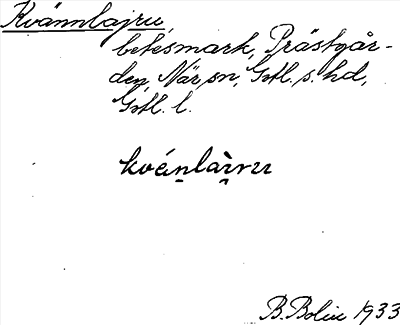 Kvännlajru,
betesmark, Prästgår-
den, När sn, Gotl. s. hd,
Gotl. l.
kvénlàɪru
B. Bolin 1933